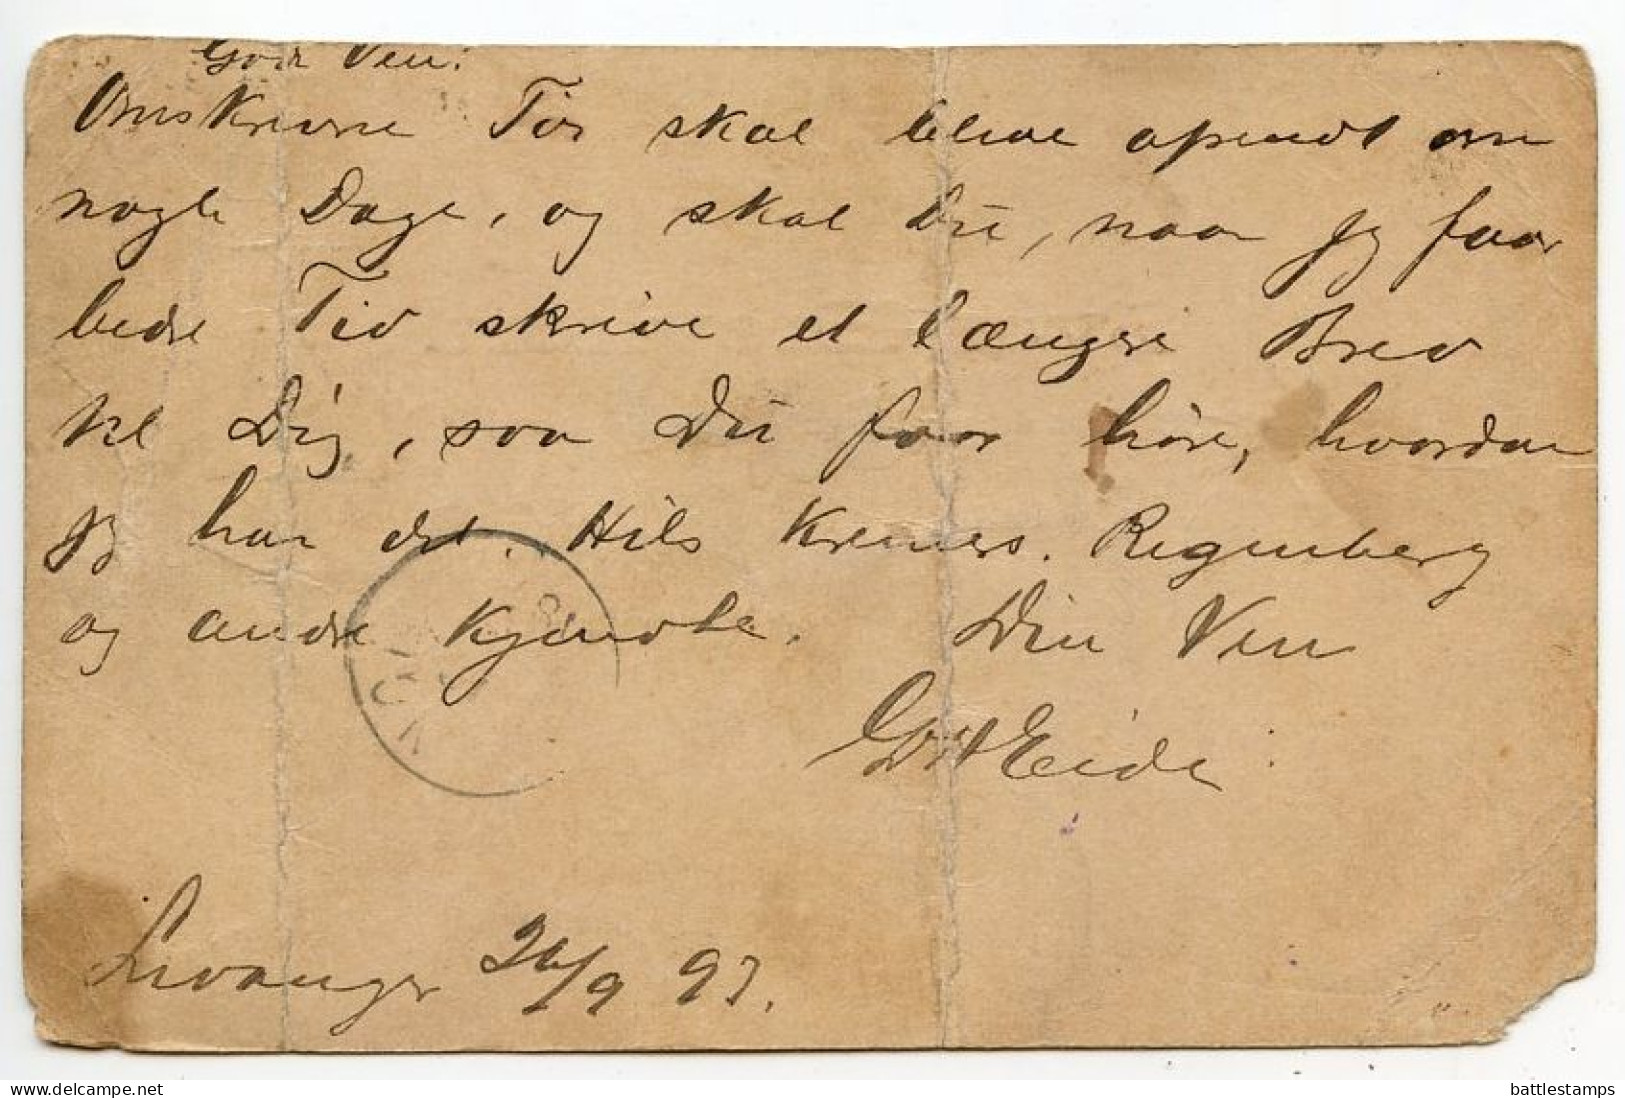 God Ven!
Omskrevne Tøi skal blive afsendt om
nogle Dage, og skal Du, naar jeg faar
bedre Tid skrive et længere Brev
til Dig, saa Du faar høre, hvordan
jeg har det. Hils Kremers. Regenberg
og andre Kjendte. Din Ven
Eide
Levanger 26/9 97.
battlestamps